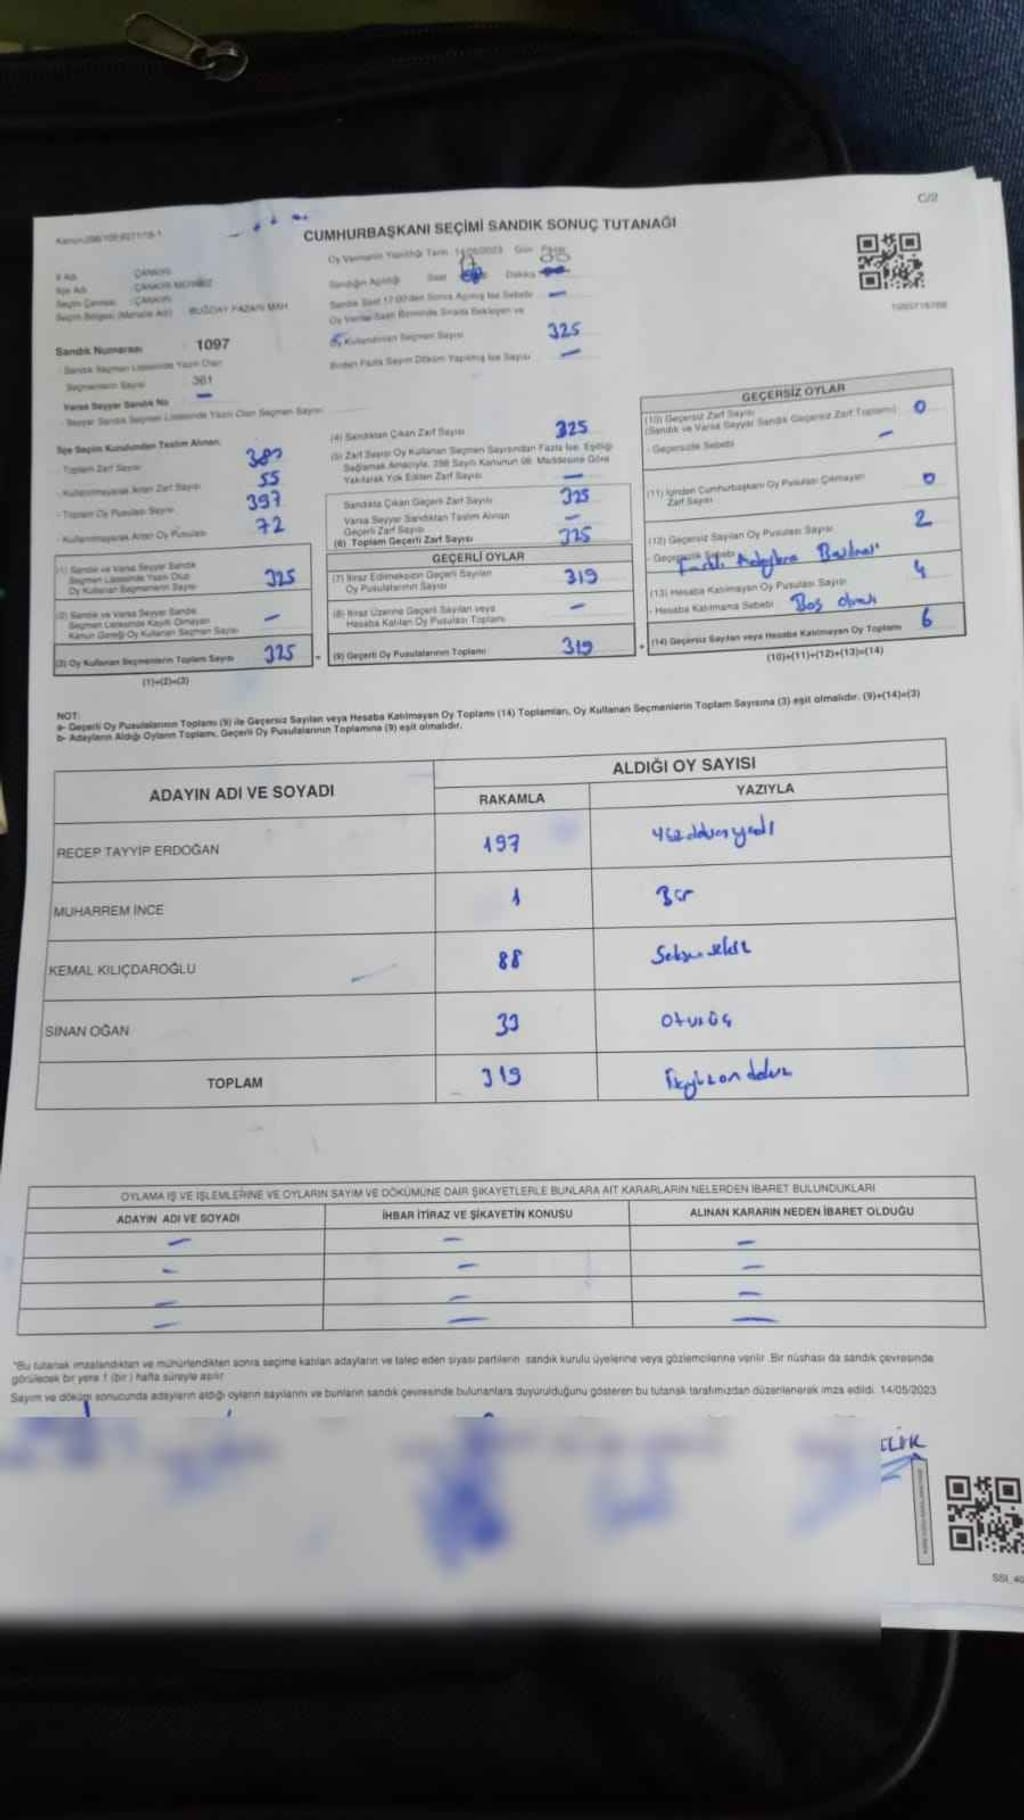 C/2
CUMHURBAŞKANI SEÇİMİ SANDIK SONUÇ TUTANAĞI
Oy Vermenin Yapıldığı Tarih 14/05/2023 Gün Pazar
İl Adı ÇANKIRI
İlçe Adı ÇANKIRI MERKEZ
Seçim Çevresi ÇANKIRI
Seçim Bölgesi (Mahalle Adı) BUĞDAY PAZARI MAH
Sandığın Açıldığı Saat Dakika
Sandık Saat 17:00'den Sonra Açılmış İse Sebebi —
Oy Verme Saati Bitiminde Sırada Bekleyen ve
Oy Kullandırılan Seçmen Sayısı 325
Birden Fazla Sayım Döküm Yapılmış İse Sayısı —
Sandık Numarası 1097
Sandık Seçmen Listesinde Yazılı Olan
Seçmenlerin Sayısı 361
Varsa Seyyar Sandık No —
Seyyar Sandık Seçmen Listesinde Yazılı Olan Seçmen Sayısı
İlçe Seçim Kurulundan Teslim Alınan;
- Toplam Zarf Sayısı 380
- Kullanılmayarak Artan Zarf Sayısı 55
- Toplam Oy Pusulası Sayısı 397
- Kullanılmayarak Artan Oy Pusulası 72
(1) Sandık ve Varsa Seyyar Sandık
Seçmen Listesinde Yazılı Olup
Oy Kullanan Seçmenlerin Sayısı 325
(2) Sandık ve Varsa Seyyar Sandık
Seçmen Listesinde Kayıtlı Olmayan
Kanun Gereği Oy Kullanan Seçmen Sayısı —
(3) Oy Kullanan Seçmenlerin Toplam Sayısı 325
(1)+(2)=(3)
(4) Sandıktan Çıkan Zarf Sayısı 325
(5) Zarf Sayısı Oy Kullanan Seçmen Sayısından Fazla İse, Eşitliği
Sağlamak Amacıyla, 298 Sayılı Kanunun 98. Maddesine Göre
Yakılarak Yok Edilen Zarf Sayısı —
Sandıkta Çıkan Geçerli Zarf Sayısı 325
Varsa Seyyar Sandıktan Teslim Alınan
Geçerli Zarf Sayısı —
(6) Toplam Geçerli Zarf Sayısı 325
GEÇERLİ OYLAR
(7) İtiraz Edilmeksizin Geçerli Sayılan
Oy Pusulalarının Sayısı 319
(8) İtiraz Üzerine Geçerli Sayılan veya
Hesaba Katılan Oy Pusulası Toplamı —
(9) Geçerli Oy Pusulalarının Toplamı 319
GEÇERSİZ OYLAR
(10) Geçersiz Zarf Sayısı
(Sandık ve Varsa Seyyar Sandık Geçersiz Zarf Toplamı) 0
- Geçersizlik Sebebi —
(11) İçinden Cumhurbaşkanı Oy Pusulası Çıkmayan
Zarf Sayısı 0
(12) Geçersiz Sayılan Oy Pusulası Sayısı 2
- Geçersizlik Sebebi Farklı Adaylara
(13) Hesaba Katılmayan Oy Pusulası Sayısı 4
- Hesaba Katılmama Sebebi Boş olması
(14) Geçersiz Sayılan veya Hesaba Katılmayan Oy Toplamı 6
(10)+(11)+(12)+(13)=(14)
NOT:
a- Geçerli Oy Pusulalarının Toplamı (9) ile Geçersiz Sayılan veya Hesaba Katılmayan Oy Toplamı (14) Toplamları, Oy Kullanan Seçmenlerin Toplam Sayısına (3) eşit olmalıdır. (9)+(14)=(3)
b- Adayların Aldığı Oyların Toplamı, Geçerli Oy Pusulalarının Toplamına (9) eşit olmalıdır.
ADAYIN ADI VE SOYADI ALDIĞI OY SAYISI
RAKAMLA YAZIYLA
RECEP TAYYİP ERDOĞAN 197
MUHARREM İNCE 1 Bir
KEMAL KILIÇDAROĞLU 88 Seksensekiz
SİNAN OĞAN 33 Otuzüç
TOPLAM 319 Üçyüzondokuz
OYLAMA İŞ VE İŞLEMLERİNE VE OYLARIN SAYIM VE DÖKÜMÜNE DAİR ŞİKAYETLERLE BUNLARA AİT KARARLARIN NELERDEN İBARET BULUNDUKLARI
ADAYIN ADI VE SOYADI İHBAR İTİRAZ VE ŞİKAYETİN KONUSU ALINAN KARARIN NEDEN İBARET OLDUĞU
— — —
— — —
— — —
— — —
"Bu tutanak imzalandıktan ve mühürlendikten sonra seçime katılan adayların ve talep eden siyasi partilerin sandık kurulu üyelerine veya gözlemcilerine verilir. Bir nüshası da sandık çevresinde
görülecek bir yere 1 (bir) hafta süreyle asılır
Sayım ve döküm sonucunda adayların aldığı oyların sayılarını ve bunların sandık çevresinde bulunanlara duyurulduğunu gösteren bu tutanak tarafımızdan düzenlenerek imza edildi. 14/05/2023